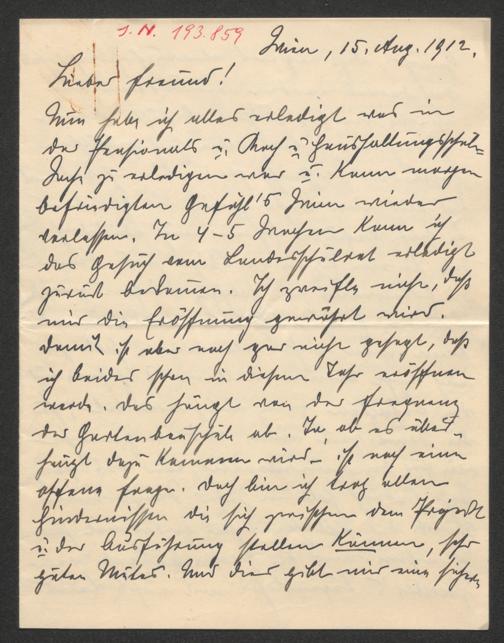 J. N. 193.859
Wien, 15. Aug. 1912.
Lieber Freund!
Nun habe ich alles erledigt was in
der Pensionats u. Koch u Haushaltungsschul-
Sache zu erledigen war u. kann morgen
befriedigten Gefühl's Wien wieder
verlassen. In 4-5 Wochen kann ich
das Gesuch vom Landesschulrat erledigt
zurück bekommen. Ich zweifle nicht, daß
mir die Eröffnung gewährt wird.
Damit ist aber noch gar nicht gesagt, daß
ich beides schon in diesem Jahr eröffnen
werde. Das hängt von der Frequenz
der Gartenbauschule ab. Ja ob es über-
haupt dazu kommen wird - ist noch eine
offene Frage. Doch bin ich trotz allen
Hindernissen die sich zwischen dem Projekt
u der Ausführung stellen können, sehr
guten Mutes. Und dies gibt mir eine sichere